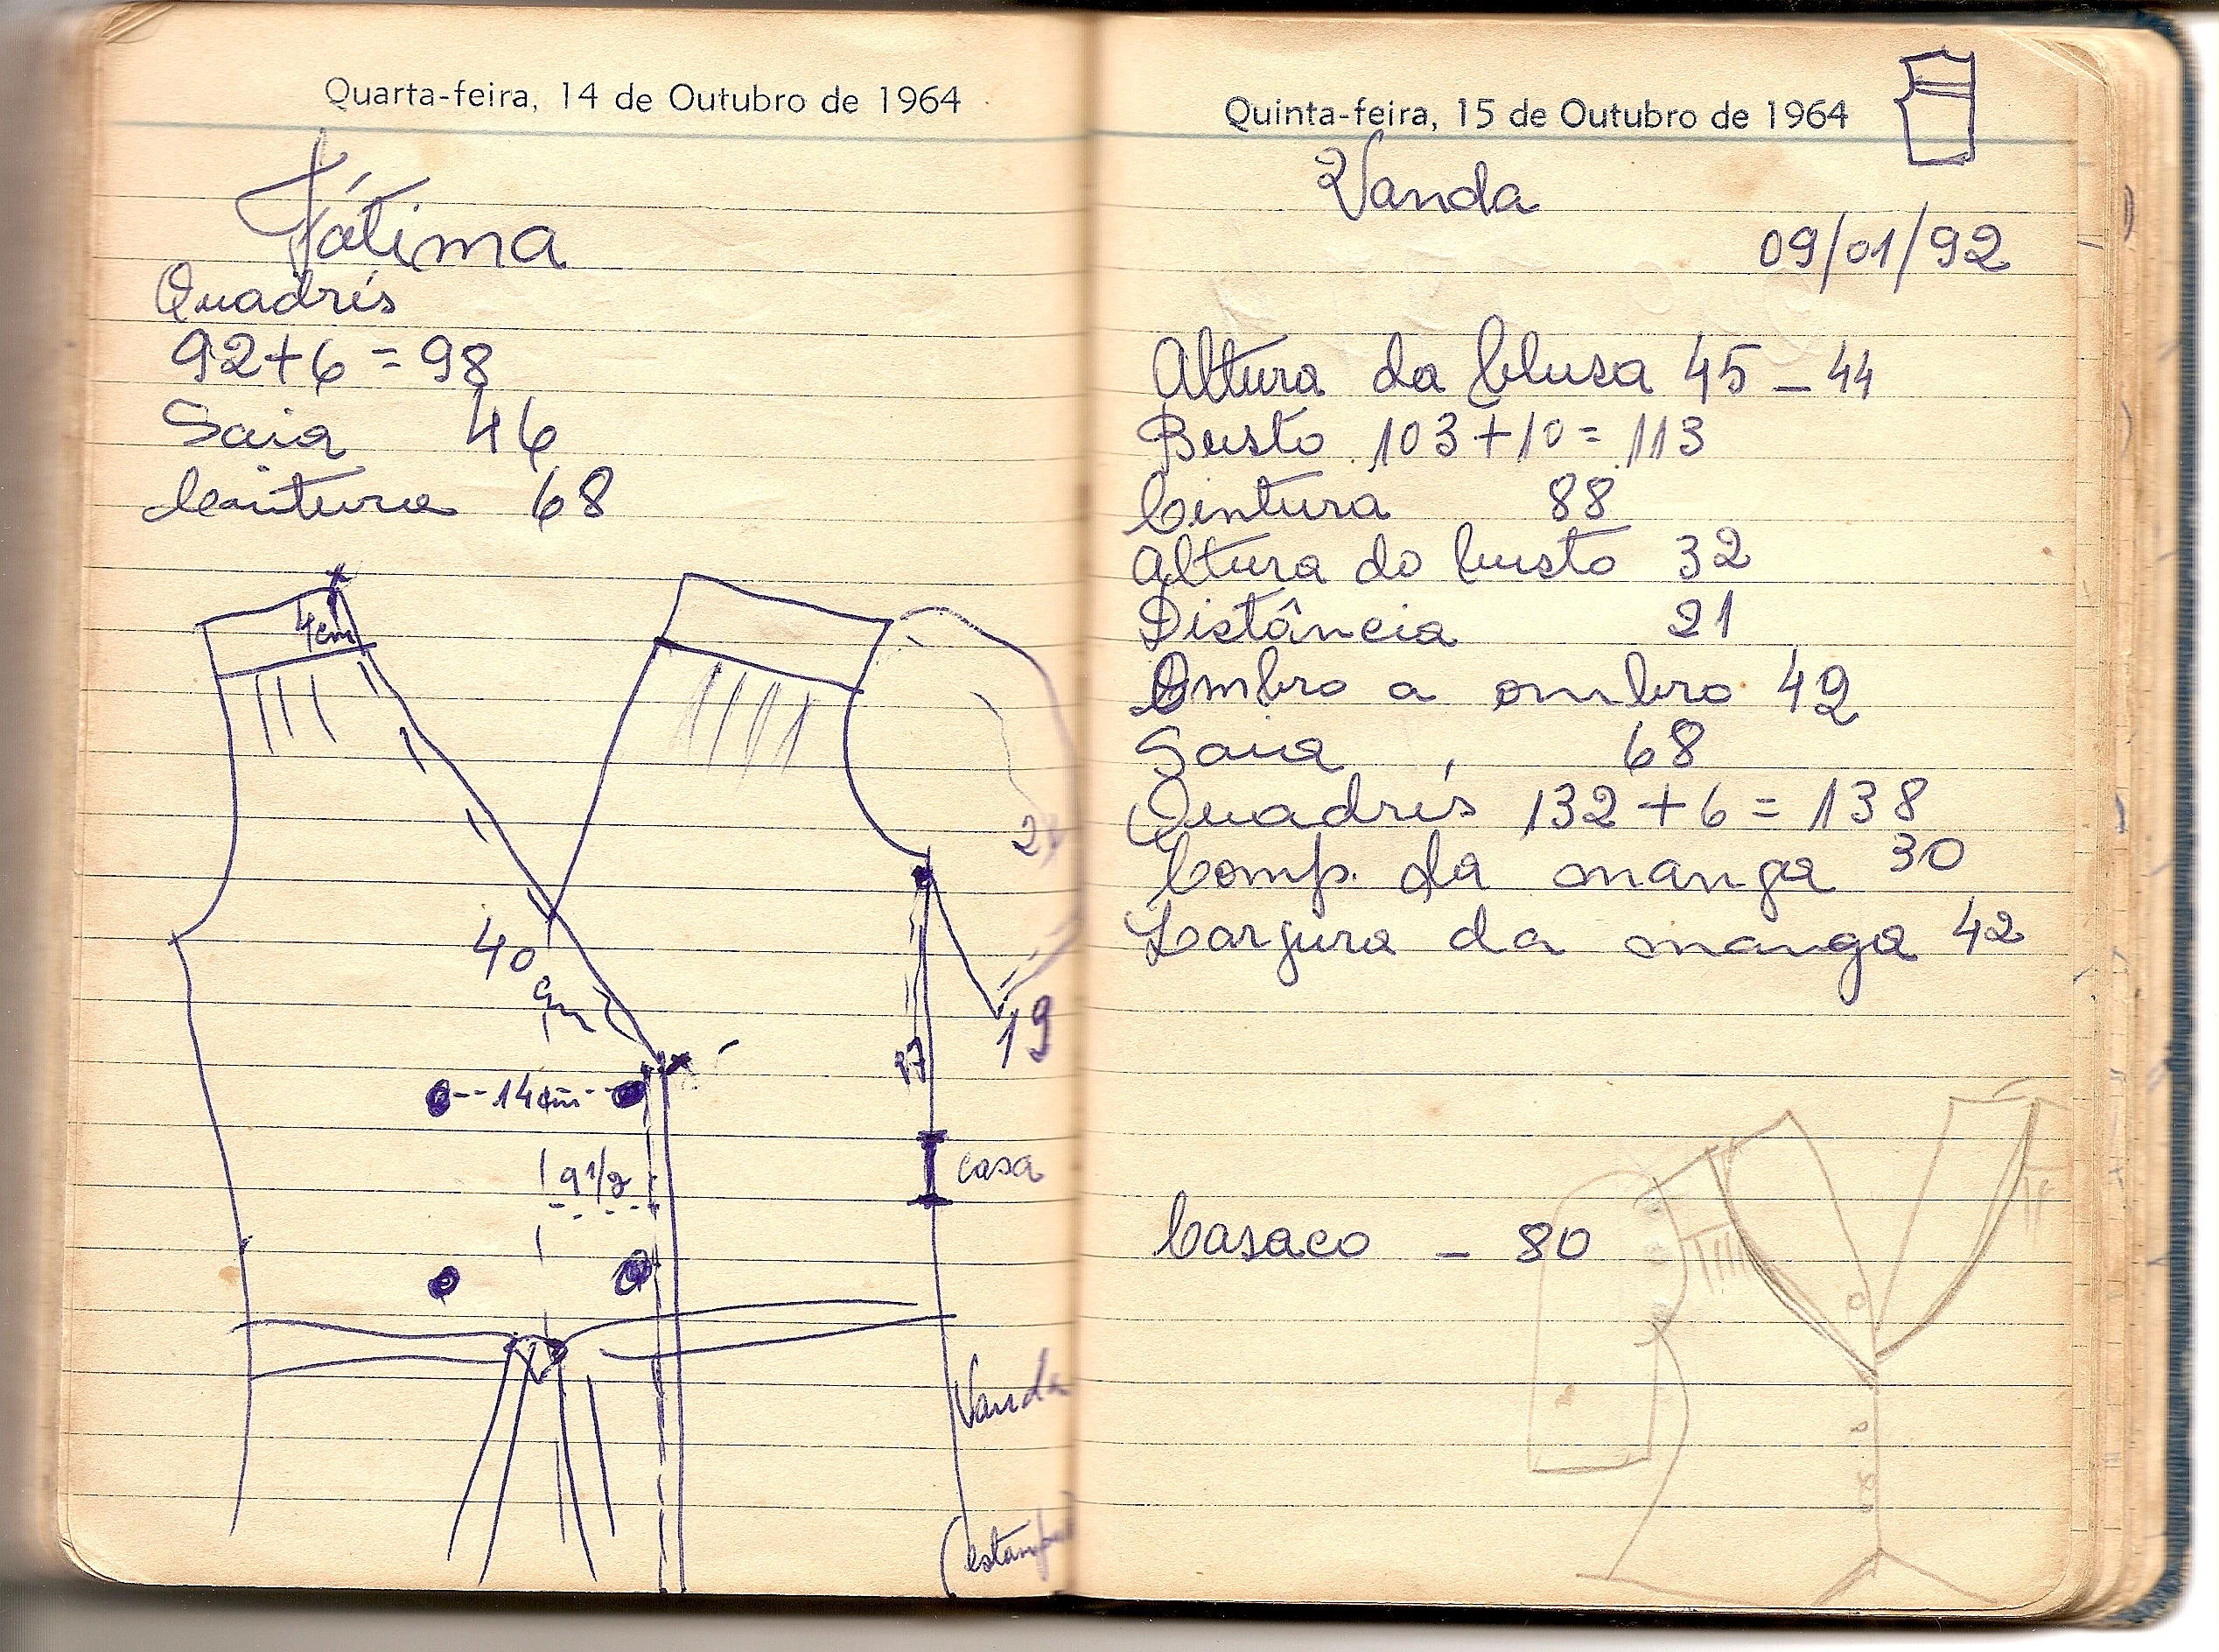 Quarta-feira, 14 de Outubro de 1964
Fátima
Quadrís
92+6=98
Saia 46
Cintura 68
4cm
40
2
19
17
14cm
9 1/2
casa
Vanda
Quinta-feira, 15 de Outubro de 1964
Vanda
09/01/92
Altura da blusa 45 - 44
Busto 103+10=113
Cintura 88
Altura do busto 32
Distância 21
Ombro a ombro 42
Saia 68
Quadrís 132+6=138
Comp. da manga 30
Largura da manga 42
Casaco - 80